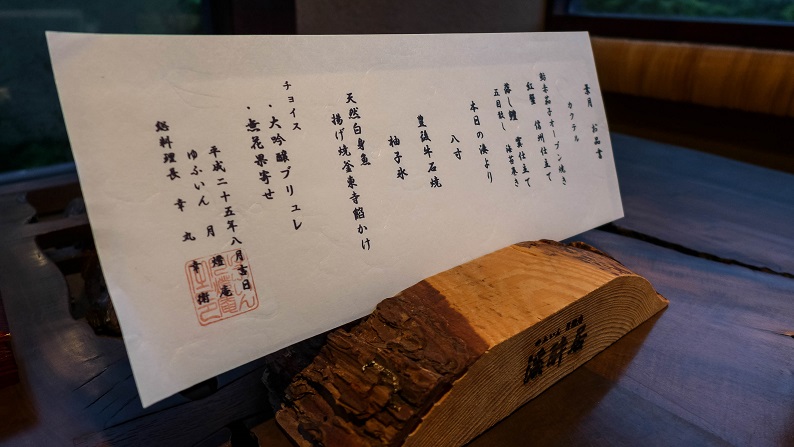 葉月 お品書
カクテル
鮎赤茄子オーブン焼き
紅蟹 信州仕立て
落し鱧 霙仕立て
五目散し 海苔巻き
本日の湊より
八寸
豊後牛石焼
柚子氷
天然白身魚
揚げ焼釜東寺餡かけ
チョイス
・大吟醸ブリュレ
・無花果寄せ
平成二十五年八月吉日
ゆふいん 月燈庵
総料理長 幸丸
渓畔庵